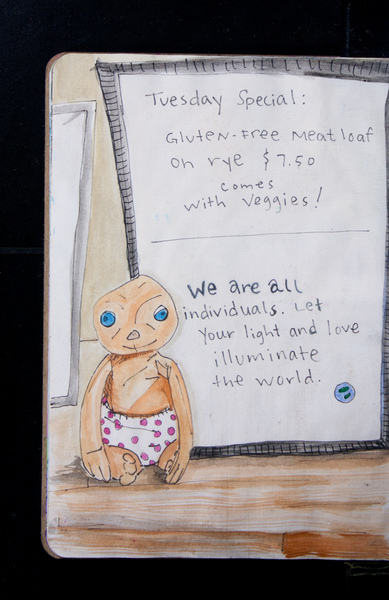 Tuesday Special:
Gluten-Free Meatloaf
on rye $7.50
comes
with Veggies!
We are all
individuals. Let
Your light and love
illuminate
the world.